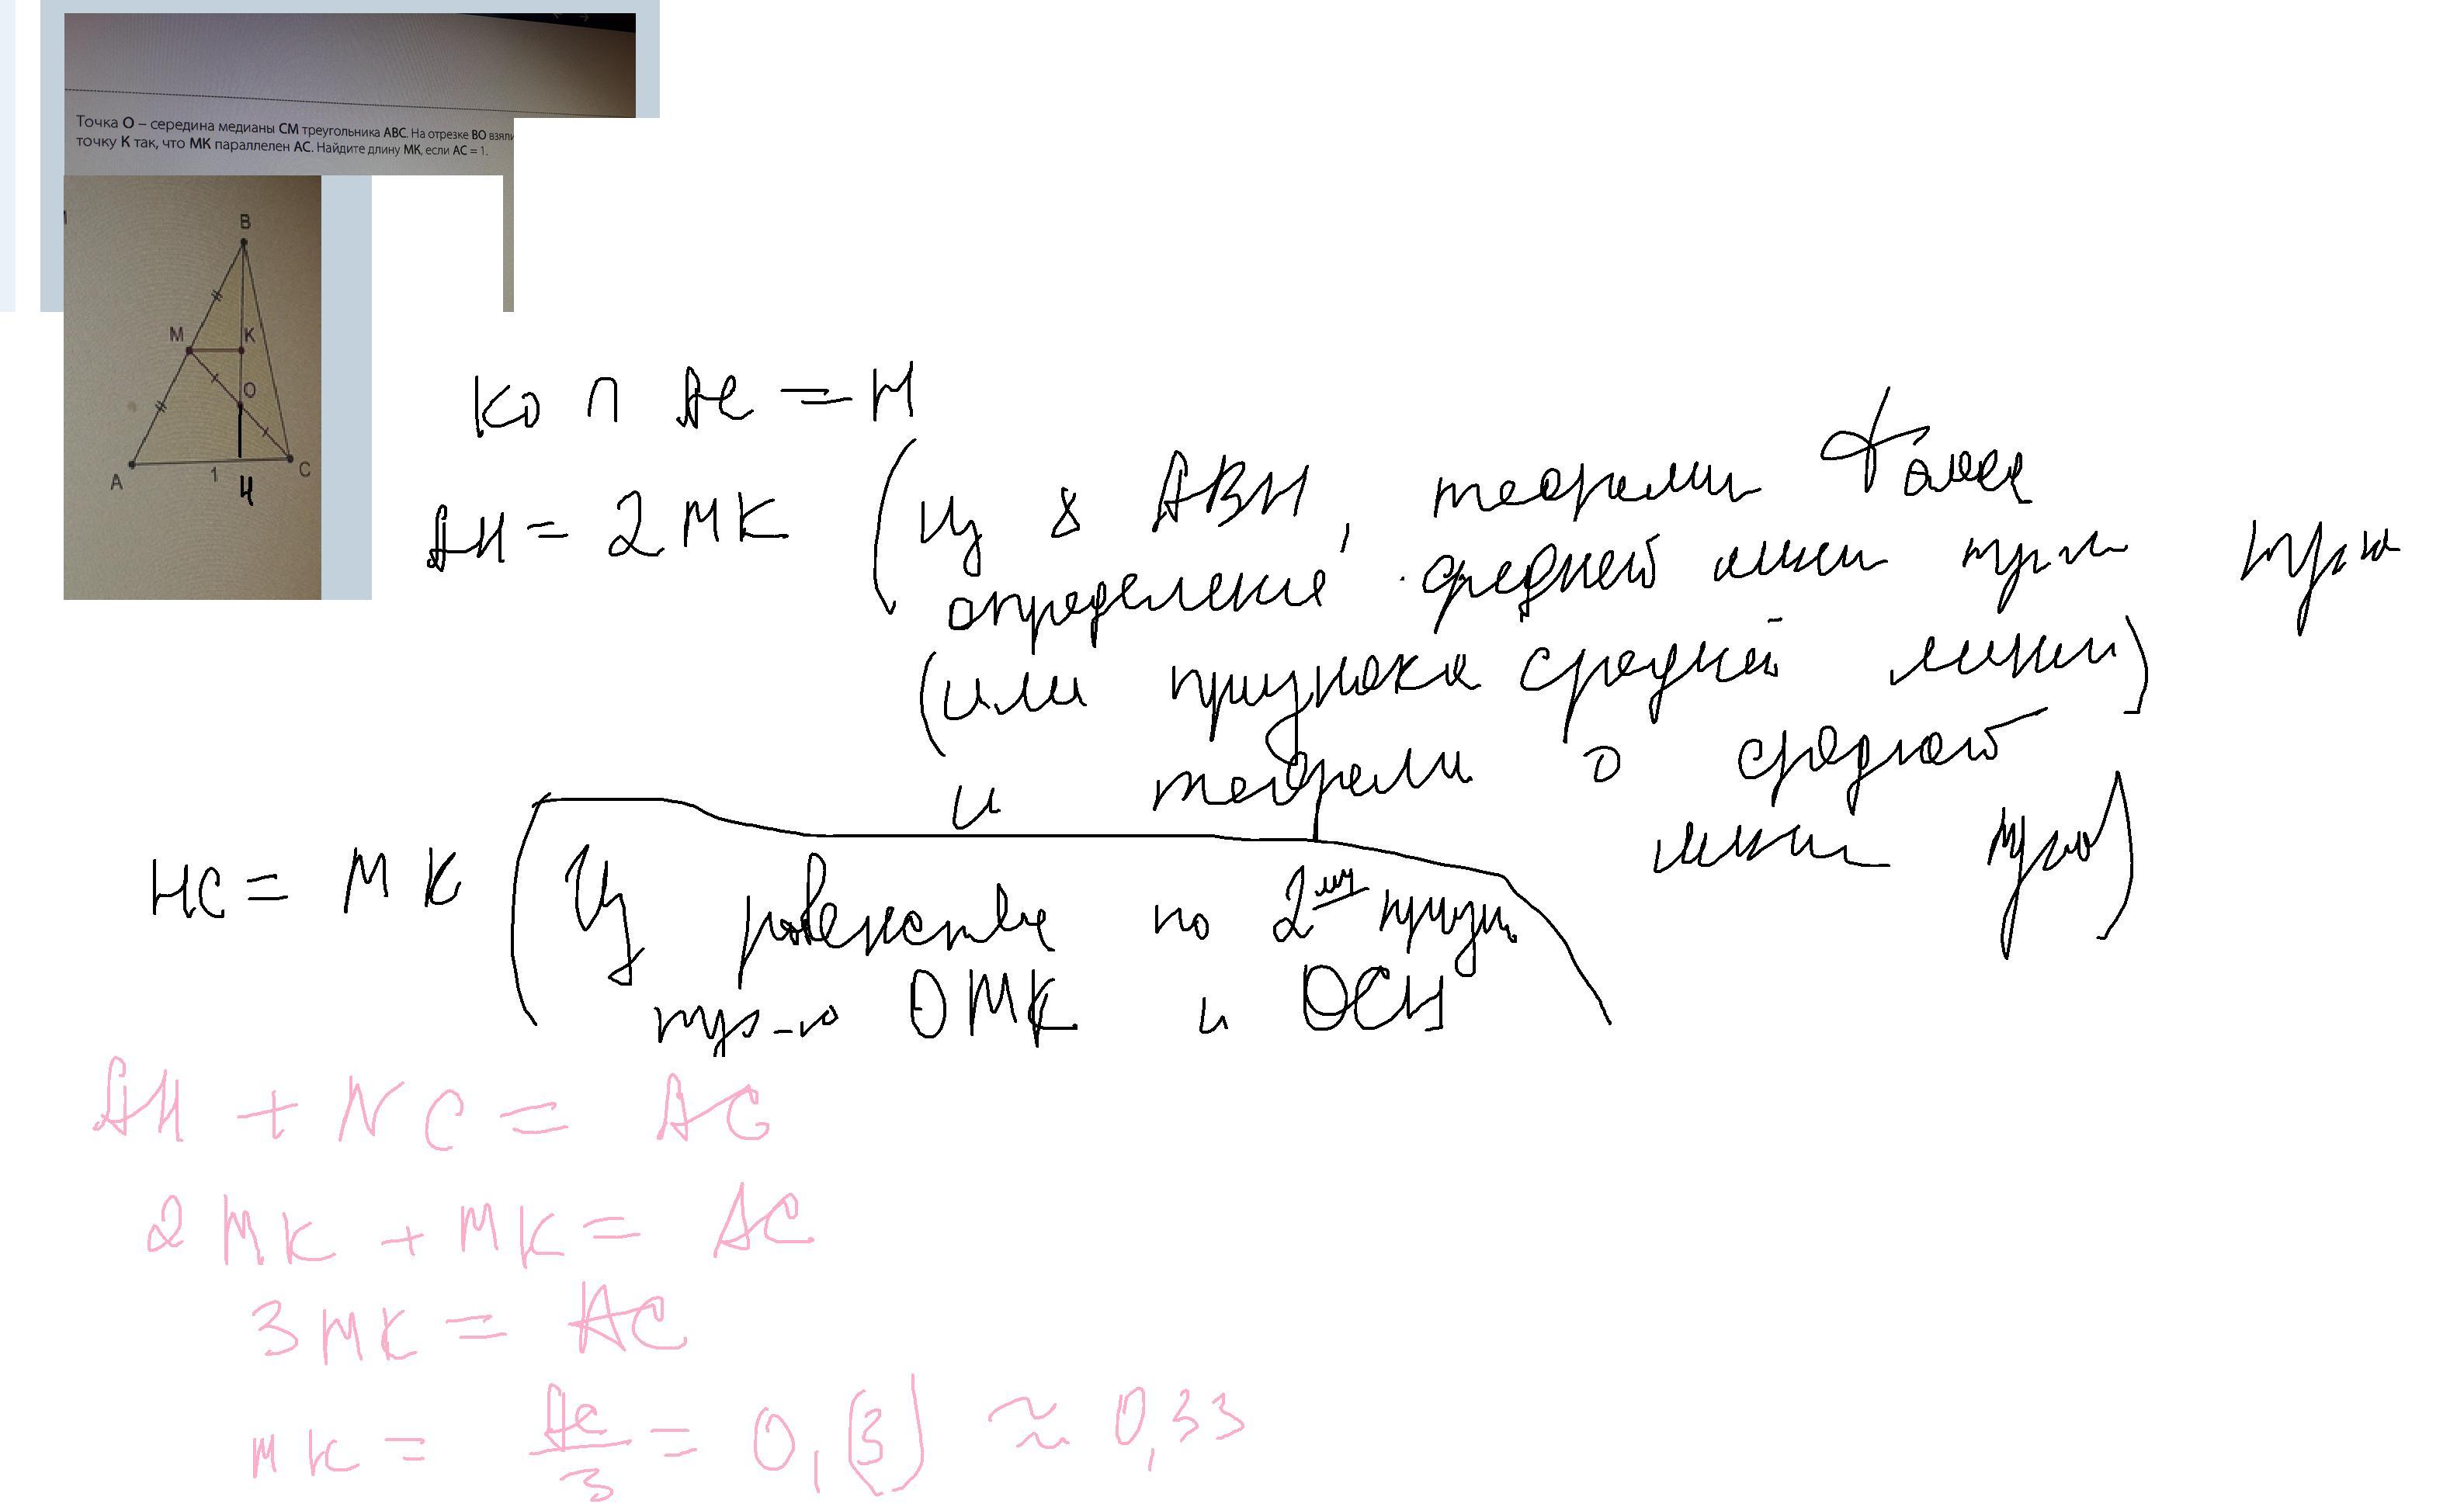 Точка О – середина медианы СМ треугольника АВС. На отрезке ВО взяли
точку К так, что МК параллелен АС. Найдите длину МК, если АС = 1.
B
M K
O
A 1 H C
KO ∩ AC = H
AH = 2 MK (Из ABH, теоремы Фалеса
определения средней линии
(или признака средней линии)
и теоремы о средней
линии
HC = MK (Из равенства по 2
OMK и OCH
AH + HC = AC
2 MK + MK = AC
3 MK = AC
MK = AC/3 = 0,(3) ≈ 0,33